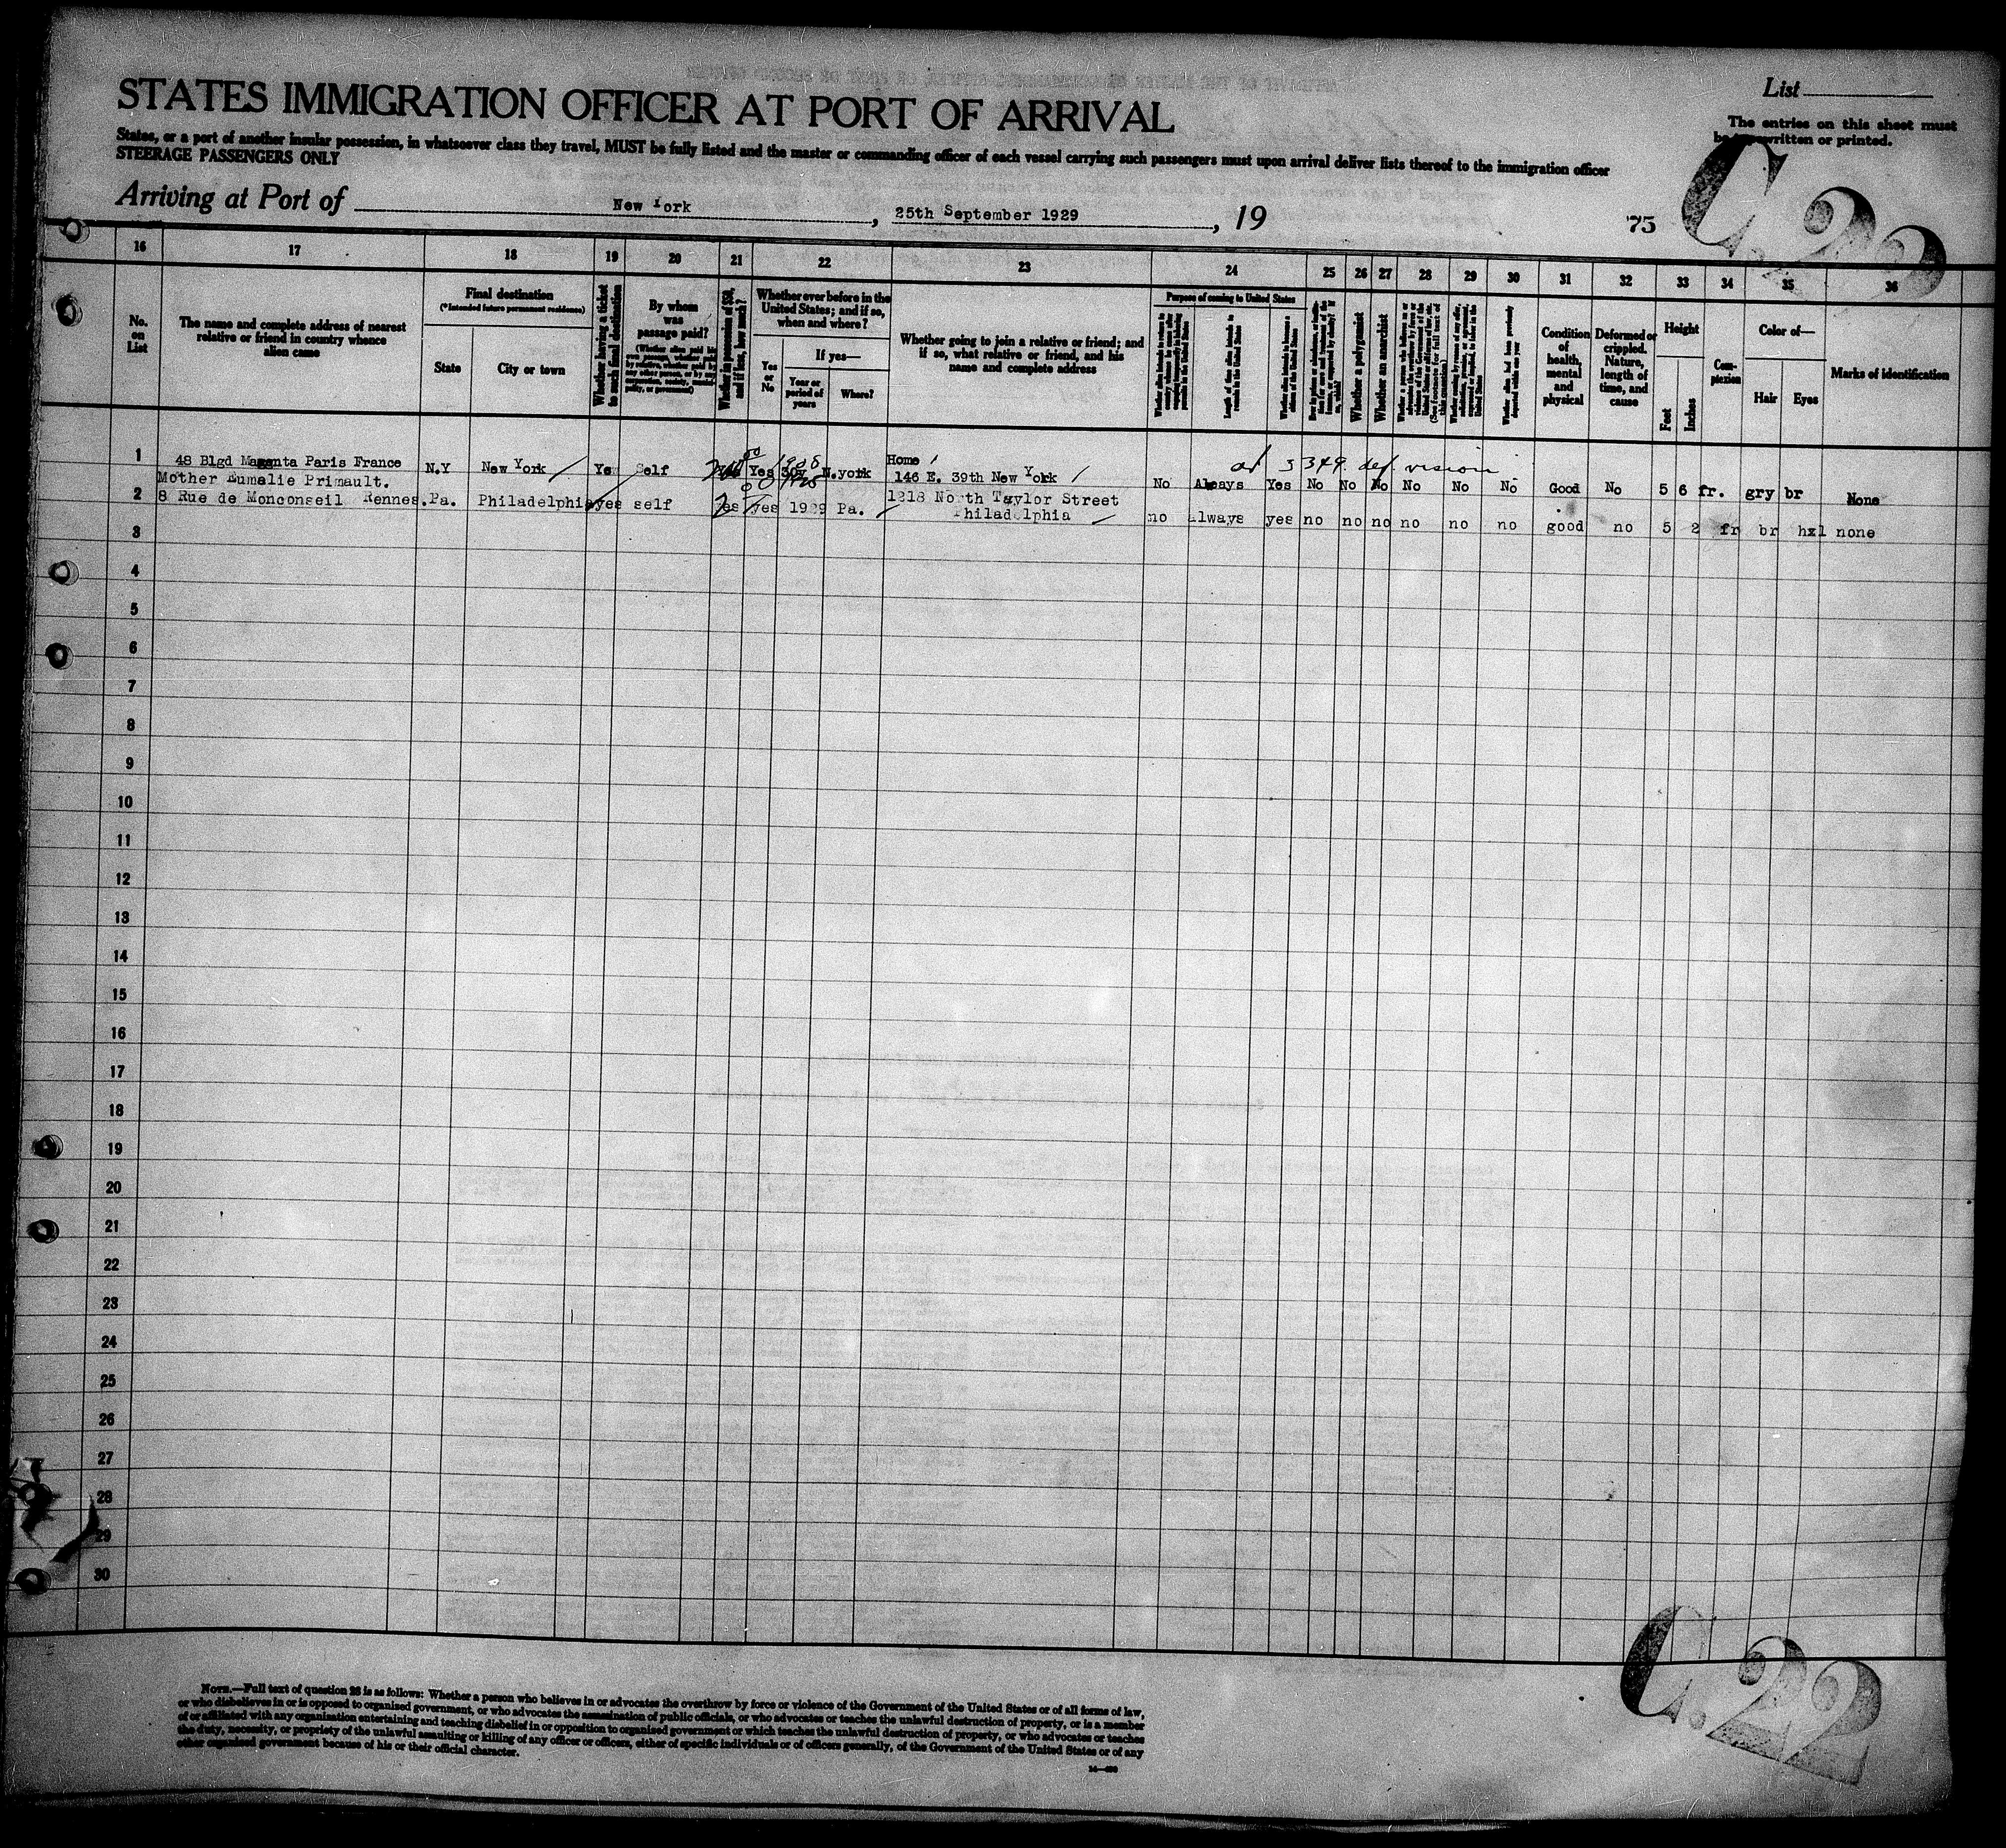 List
STATES IMMIGRATION OFFICER AT PORT OF ARRIVAL
The entries on this sheet must
be typewritten or printed.
States, or a port of another insular possession, in whatsoever class they travel, MUST be fully listed and the master or commanding officer of each vessel carrying such passengers must upon arrival deliver lists thereof to the immigration officer
STEERAGE PASSENGERS ONLY
C. 22
Arriving at Port of New York, 25th September 1929, 19
75
16 17 18 19 20 21 22 23 24 25 26 27 28 29 30 31 32 33 34 35 36
No. on List
The name and complete address of nearest relative or friend in country whence alien came
Final destination
(*Intended future permanent residence)
State
City or town
Whether having a ticket to such final destination
By whom was passage paid?
Whether in possession of $50, and if less, how much?
Whether ever before in the United States; and if so, when and where?
Yes or No
If yes—
Year or period of years
Where?
Whether going to join a relative or friend; and if so, what relative or friend, and his name and complete address
Purpose of coming to United States
Length of time alien intends to remain in the United States
Whether alien intends to become a citizen of the United States
Whether a polygamist
Whether an anarchist
Condition of health, mental and physical
Deformed or crippled. Nature, length of time, and cause
Height
Feet
Inches
Complexion
Color of—
Hair
Eyes
Marks of identification
1 48 Blgd Magenta Paris France N.Y New York Yes Self Yes 1928 N.york Home
146 E. 39th New York No Always Yes No No No No No No Good No 5 6 fr. gry br None
3349 def. vision
Mother Eumelie Primault.
2 8 Rue de Monconseil Rennes. Pa. Philadelphia yes self yes yes 1929 Pa. 1218 North Taylor Street
Philadelphia no always yes no no no no no no good no 5 2 fr br hzl none
3
4
5
6
7
8
9
10
11
12
13
14
15
16
17
18
19
20
21
22
23
24
25
26
27
28
29
30
C. 22
NOTE.—Full text of question 28 is as follows: Whether a person who believes in or advocates the overthrow by force or violence of the Government of the United States or of all forms of law,
or who disbelieves in or is opposed to organized government, or who advocates the assassination of public officials, or who advocates or teaches the unlawful destruction of property, or is a member
of or affiliated with any organization entertaining and teaching disbelief in or opposition to organized government or which teaches the unlawful destruction of property, or who advocates or teaches
the duty, necessity, or propriety of the unlawful assaulting or killing of any officer or officers, either of specific individuals or of officers generally, of the Government of the United States or of any
other organized government because of his or their official character.